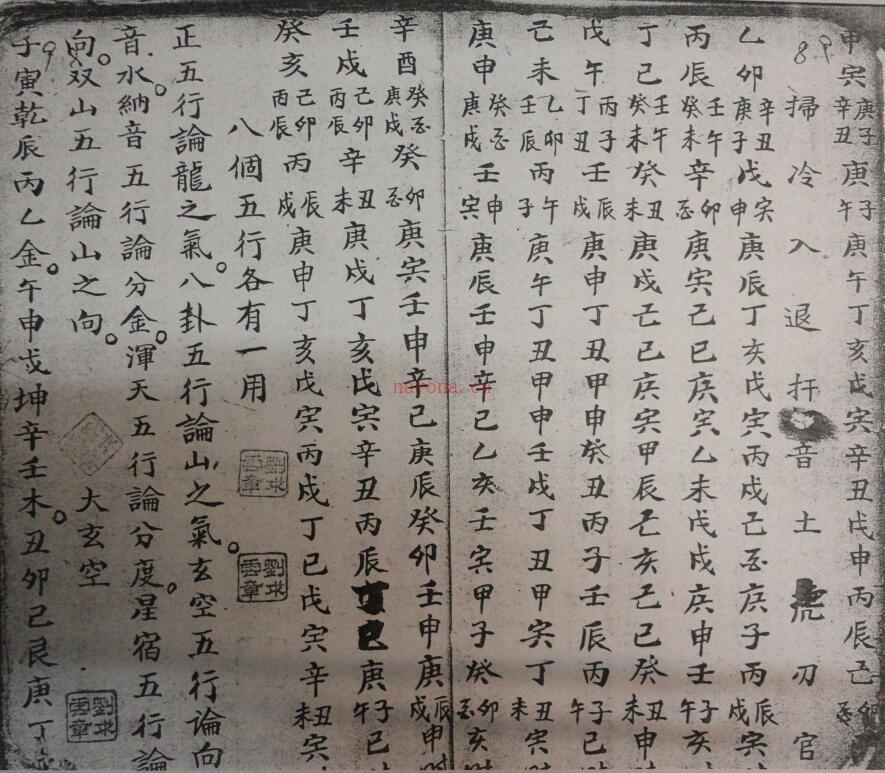 申寅 庚子 辛丑 庚 子午 庚午丁亥戊寅辛丑戊申丙辰己 卯
89 掃冷入退扞音土虎刃官
乙卯 辛丑 庚子 戊 寅申 庚辰丁亥戊寅丙戍己丑庚子丙 辰戍 寅
丙辰 壬午 癸未 辛 卯 庚寅己巳庚寅乙未戊戍庚申壬 子午 亥
丁巳 壬午 癸未 癸 丑未 庚戍己巳庚寅甲辰己亥己巳癸 丑未 申
戊午 丙子 丁丑 丁 辰戍 庚申丁丑甲申癸丑丙子壬辰丙 子午 巳
己未 乙卯 壬辰 丙 午子 庚午丁丑甲申壬戍丁丑甲寅丁 丑未 寅
庚申 癸 庚戍 壬 申寅 庚辰壬申辛巳乙亥壬寅甲子癸 卯 亥
辛酉 癸 庚戍 癸 卯 庚寅壬申辛巳庚辰癸卯壬申庚 辰戍 申
壬戍 己卯 丙辰 辛 丑未 庚戍丁亥戊寅辛丑丙辰丁巳庚 子午 巳
癸亥 己卯 丙辰 丙 辰戍 庚申丁亥戊寅丙戍丁巳戊寅辛 丑未 寅
八個五行各有一用
正五行論龍之氣。八卦五行論山之氣。玄空五行論向
音水。納音五行論分金。渾天五行論分度。星宿五行論
向。双山五行論山之向。 大玄空
子寅乾辰丙乙金。午申戍坤辛壬木。丑卯己艮庚丁
劉求
雲章
劉求
雲章
劉求
雲章
nayona.cn